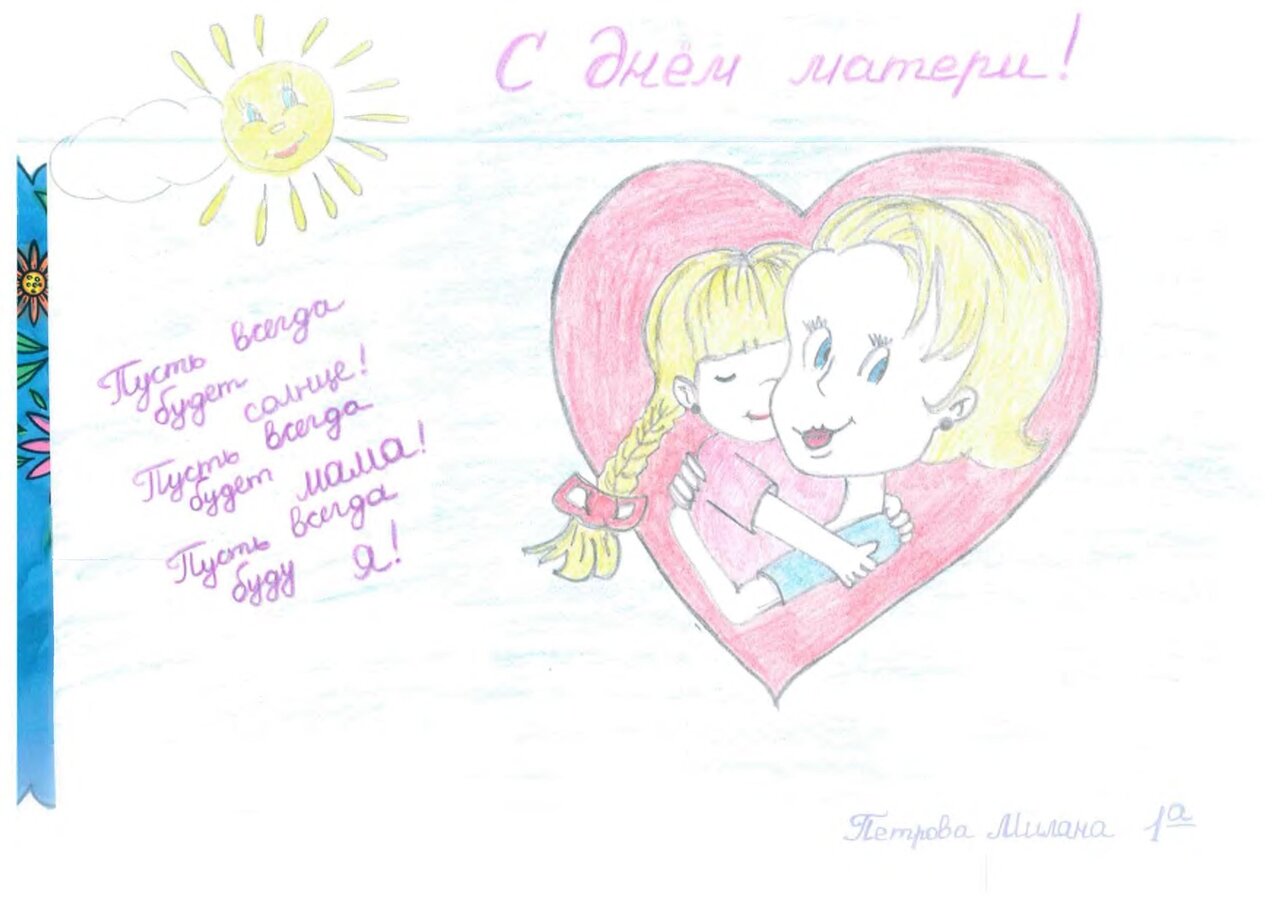 С днём матери!
Пусть всегда
будет
солнце!
Пусть всегда
будет мама!
Пусть всегда
буду Я!
Петрова Милана 1а